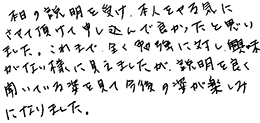 和の説明を受け、本人もやる気に
させて頂けて申し込んで良かったと思い
ました。これまで、全く勉強に対し、興味
がない様に見えましたが、説明を良く
聞いている姿を見て今後の姿が楽しみ
になりました。